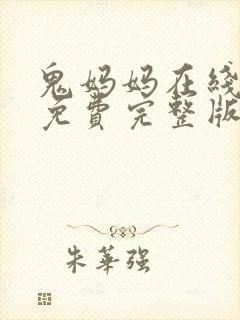 鬼妈妈在线
免费完整版
朱華强